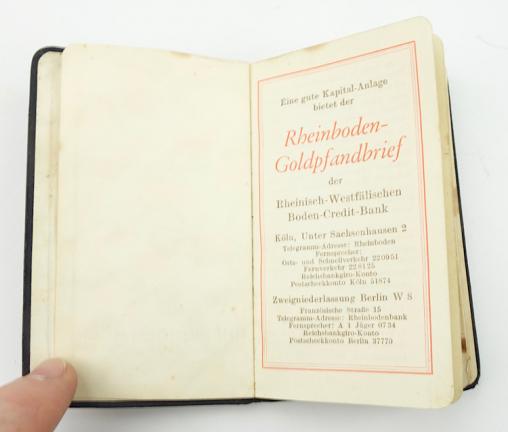 Eine gute Kapital-Anlage
bietet der
Rheinboden-
Goldpfandbrief
der
Rheinisch-Westfälischen
Boden-Credit-Bank
Köln, Unter Sachsenhausen 2
Telegramm-Adresse: Rheinboden
Fernsprecher:
Orts- und Schnellverkehr 220951
Fernverkehr 228125
Reichsbankgiro-Konto
Postscheckkonto Köln 51874
Zweigniederlassung Berlin W 8
Französische Straße 15
Telegramm-Adresse: Rheinbodenbank
Fernsprecher: A 1 Jäger 0734
Reichsbankgiro-Konto
Postscheckkonto Berlin 37770